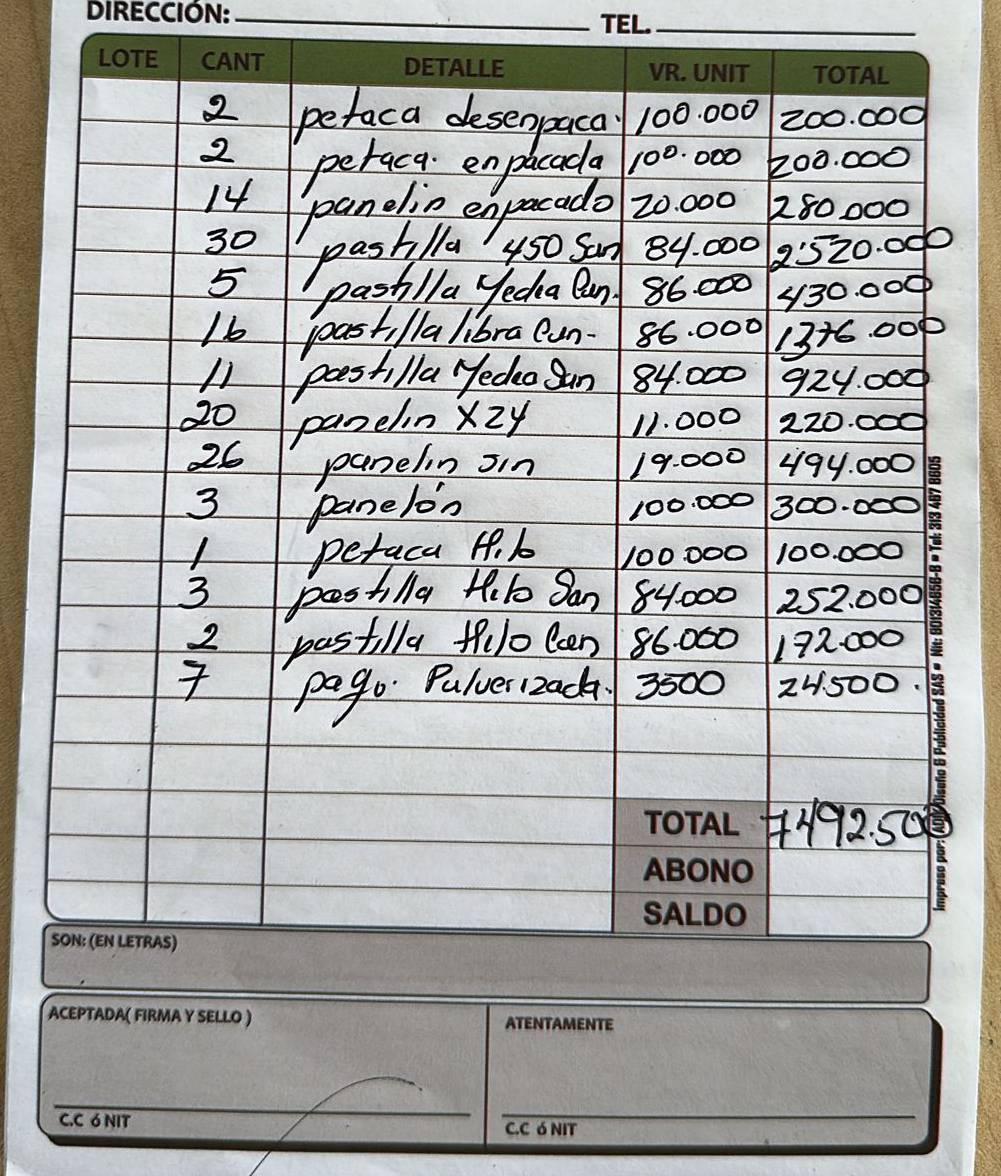 DIRECCIÓN: TEL.
LOTE CANT DETALLE VR. UNIT TOTAL
2 petaca desenpaca. 100.000 200.000
2 petaca. enpacada 100.000 200.000
14 panelin enpacado 20.000 280.000
30 pastilla 450 San 84.000 2'520.000
5 pastilla Media Can. 86.000 430.000
16 pastilla libra Can- 86.000 1376.000
11 pastilla Media San 84.000 924.000
20 panelin X24 11.000 220.000
26 panelin sin 19.000 494.000
3 panelón 100.000 300.000
1 petaca Hilo 100.000 100.000
3 pastilla Hilo San 84.000 252.000
2 pastilla Hilo Can 86.000 172.000
7 pago. Pulverizada. 3500 24.500.
TOTAL 7492.500
ABONO
SALDO
SON: (EN LETRAS)
ACEPTADA( FIRMA Y SELLO ) ATENTAMENTE
C.C ó NIT C.C ó NIT
Impreso por: Diseño & Publicidad SAS Nit: 901314856-8 Tel: 313 487 8805